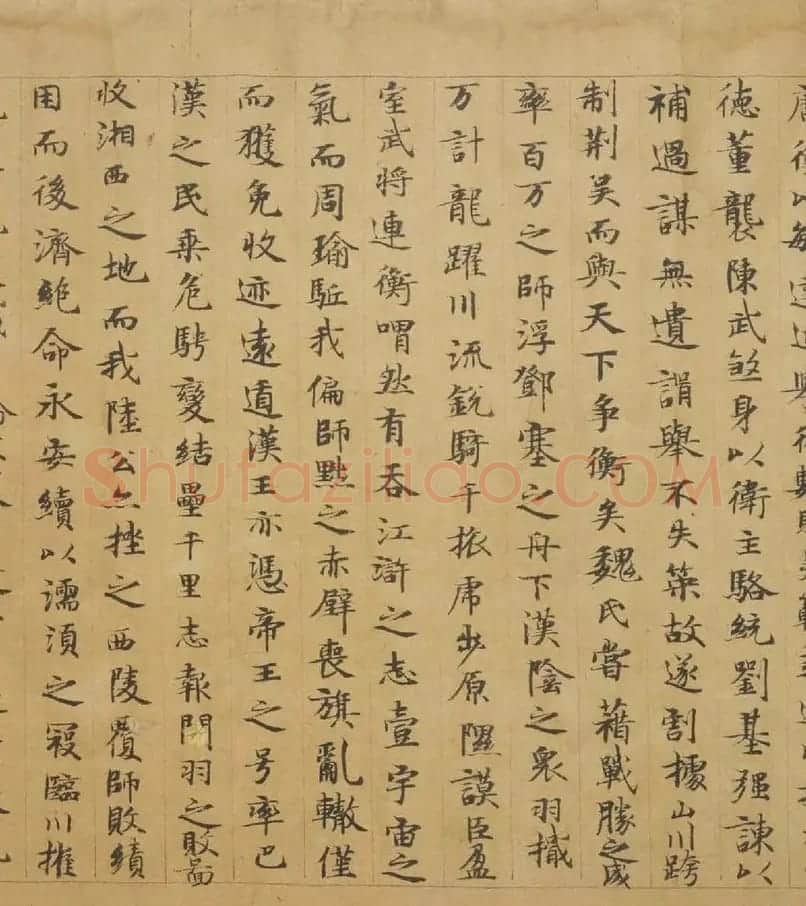 德董襲陳武煞身以衛主駱統劉基强諫以
補過謀無遺諝舉不失筞故遂割據山川跨
制荆吴而與天下争衡矣魏氏甞藉戰勝之威
率百万之師浮鄧塞之舟下漢陰之衆羽檝
万計龍躍川流銳騎千旅虎步原隰謨臣盈
室武將連衡喟然有吞江滸之志壹宇宙之
氣而周瑜駈我偏師黜之赤壁喪旗亂轍僅
而獲免收迹遠遁漢王亦憑帝王之号率巴
漢之民乘危騁變結壘千里志報関羽之敗啚
收湘西之地而我陸公亦挫之西陵覆師敗績
困而後濟絶命永安續以濡湏之寇臨川摧
Shufaziliao.COM